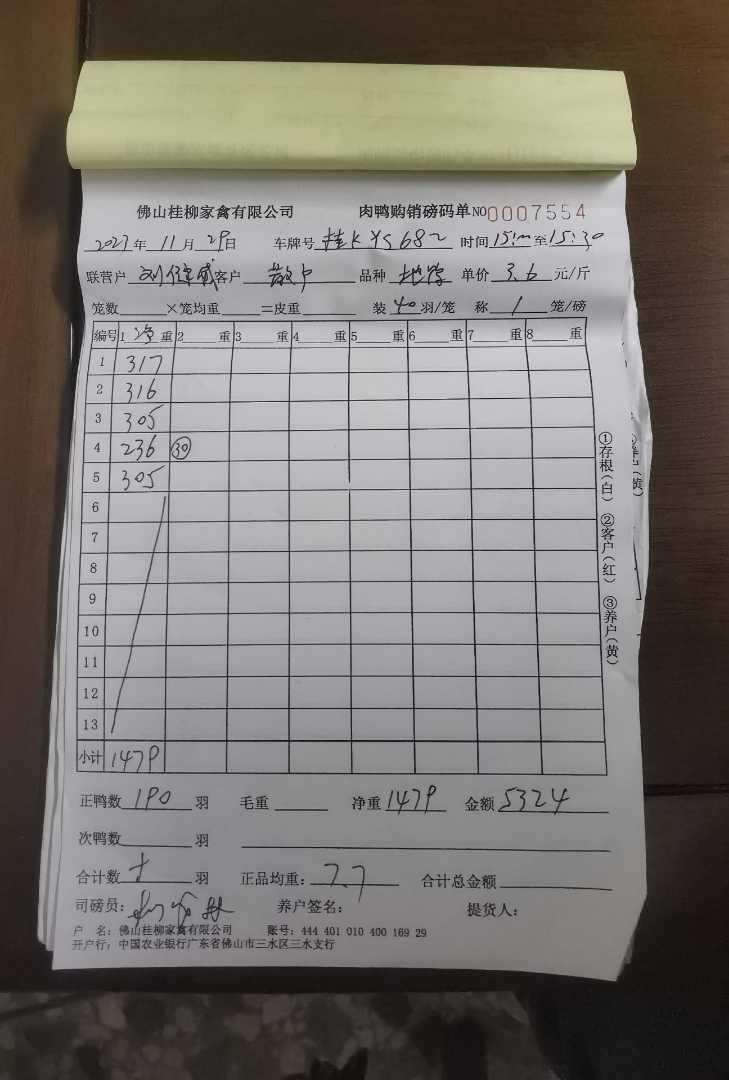 佛山桂柳家禽有限公司 肉鸭购销磅码单 NO 0007554
2023年 11月 29日 车牌号 桂KYS682 时间 15:00 至 15:30
联营户 刘健威 客户 散户 品种 单价 3.6 元/斤
笼数 ×笼均重 =皮重 装 40 羽/笼 称 1 笼/磅
编号 1 净 重 2 重 3 重 4 重 5 重 6 重 7 重 8 重
1 317
2 316
3 305
4 236 30
5 305
6
7
8
9
10
11
12
13
小计 1479
正鸭数 190 羽 毛重 净重 1479 金额 5324
次鸭数 羽
合计数 羽 正品均重: 7.7 合计总金额
司磅员: 养户签名: 提货人:
户 名: 佛山桂柳家禽有限公司 账号: 444 401 010 400 169 29
开户行: 中国农业银行广东省佛山市三水区三水支行
①存根(白) ②客户(红) ③养户(黄)